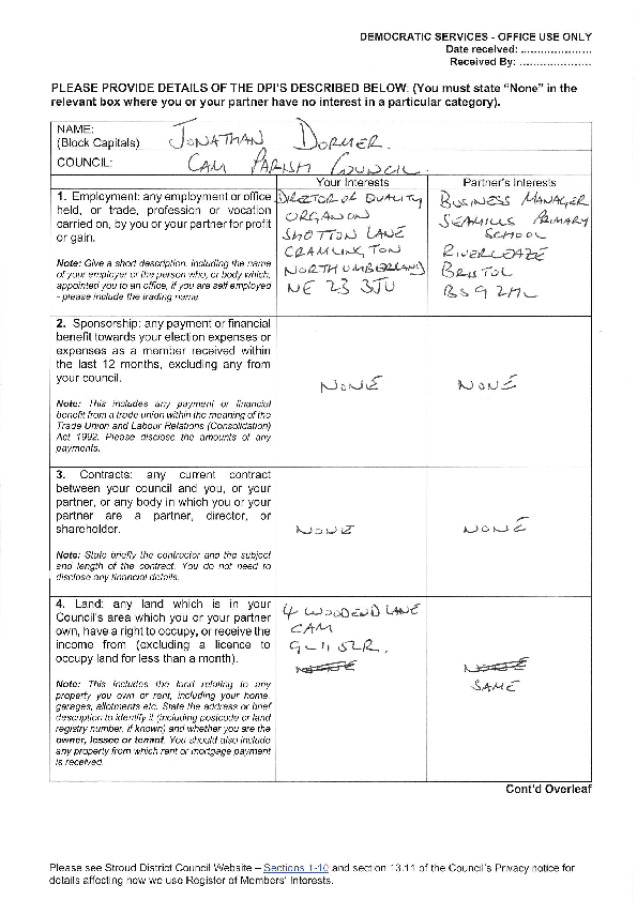 DEMOCRATIC SERVICES - OFFICE USE ONLY
Date received: .....................
Received By: .....................
PLEASE PROVIDE DETAILS OF THE DPI'S DESCRIBED BELOW: (You must state "None" in the
relevant box where you or your partner have no interest in a particular category).
NAME:
(Block Capitals)
JONATHAN DORMER.
COUNCIL:
CAM PARISH COUNCIL.
Your Interests
Partner's Interests
1. Employment: any employment or office
held, or trade, profession or vocation
carried on, by you or your partner for profit
or gain.
Note: Give a short description, including the name
of your employer or the person who, or body which,
appointed you to an office, if you are self employed
- please include the trading name
DIRECTOR OF QUALITY
ORGANON
SHOTTON LANE
CRAMLINGTON
NORTHUMBERLAND
NE 23 3JU
BUSINESS MANAGER
SEAMILLS PRIMARY
SCHOOL
RIVERLEAZE
BRISTOL
BS9 2HL
2. Sponsorship: any payment or financial
benefit towards your election expenses or
expenses as a member received within
the last 12 months, excluding any from
your council.
Note: This includes any payment or financial
benefit from a trade union within the meaning of the
Trade Union and Labour Relations (Consolidation)
Act 1992. Please disclose the amounts of any
payments.
NONE
NONE
3. Contracts: any current contract
between your council and you, or your
partner, or any body in which you or your
partner are a partner, director, or
shareholder.
Note: State briefly the contractor and the subject
and length of the contract. You do not need to
disclose any financial details.
NONE
NONE
4. Land: any land which is in your
Council's area which you or your partner
own, have a right to occupy, or receive the
income from (excluding a licence to
occupy land for less than a month).
Note: This includes the land relating to any
property you own or rent, including your home,
garages, allotments etc. State the address or brief
description to identify it (including postcode or land
registry number, if known) and whether you are the
owner, lessee or tenant. You should also include
any property from which rent or mortgage payment
is received.
4 WOODEND LANE
CAM
GL11 5LR.
SAME
Cont'd Overleaf
Please see Stroud District Council Website – Sections 1-10 and section 13.11 of the Council's Privacy notice for
details affecting how we use Register of Members' Interests.